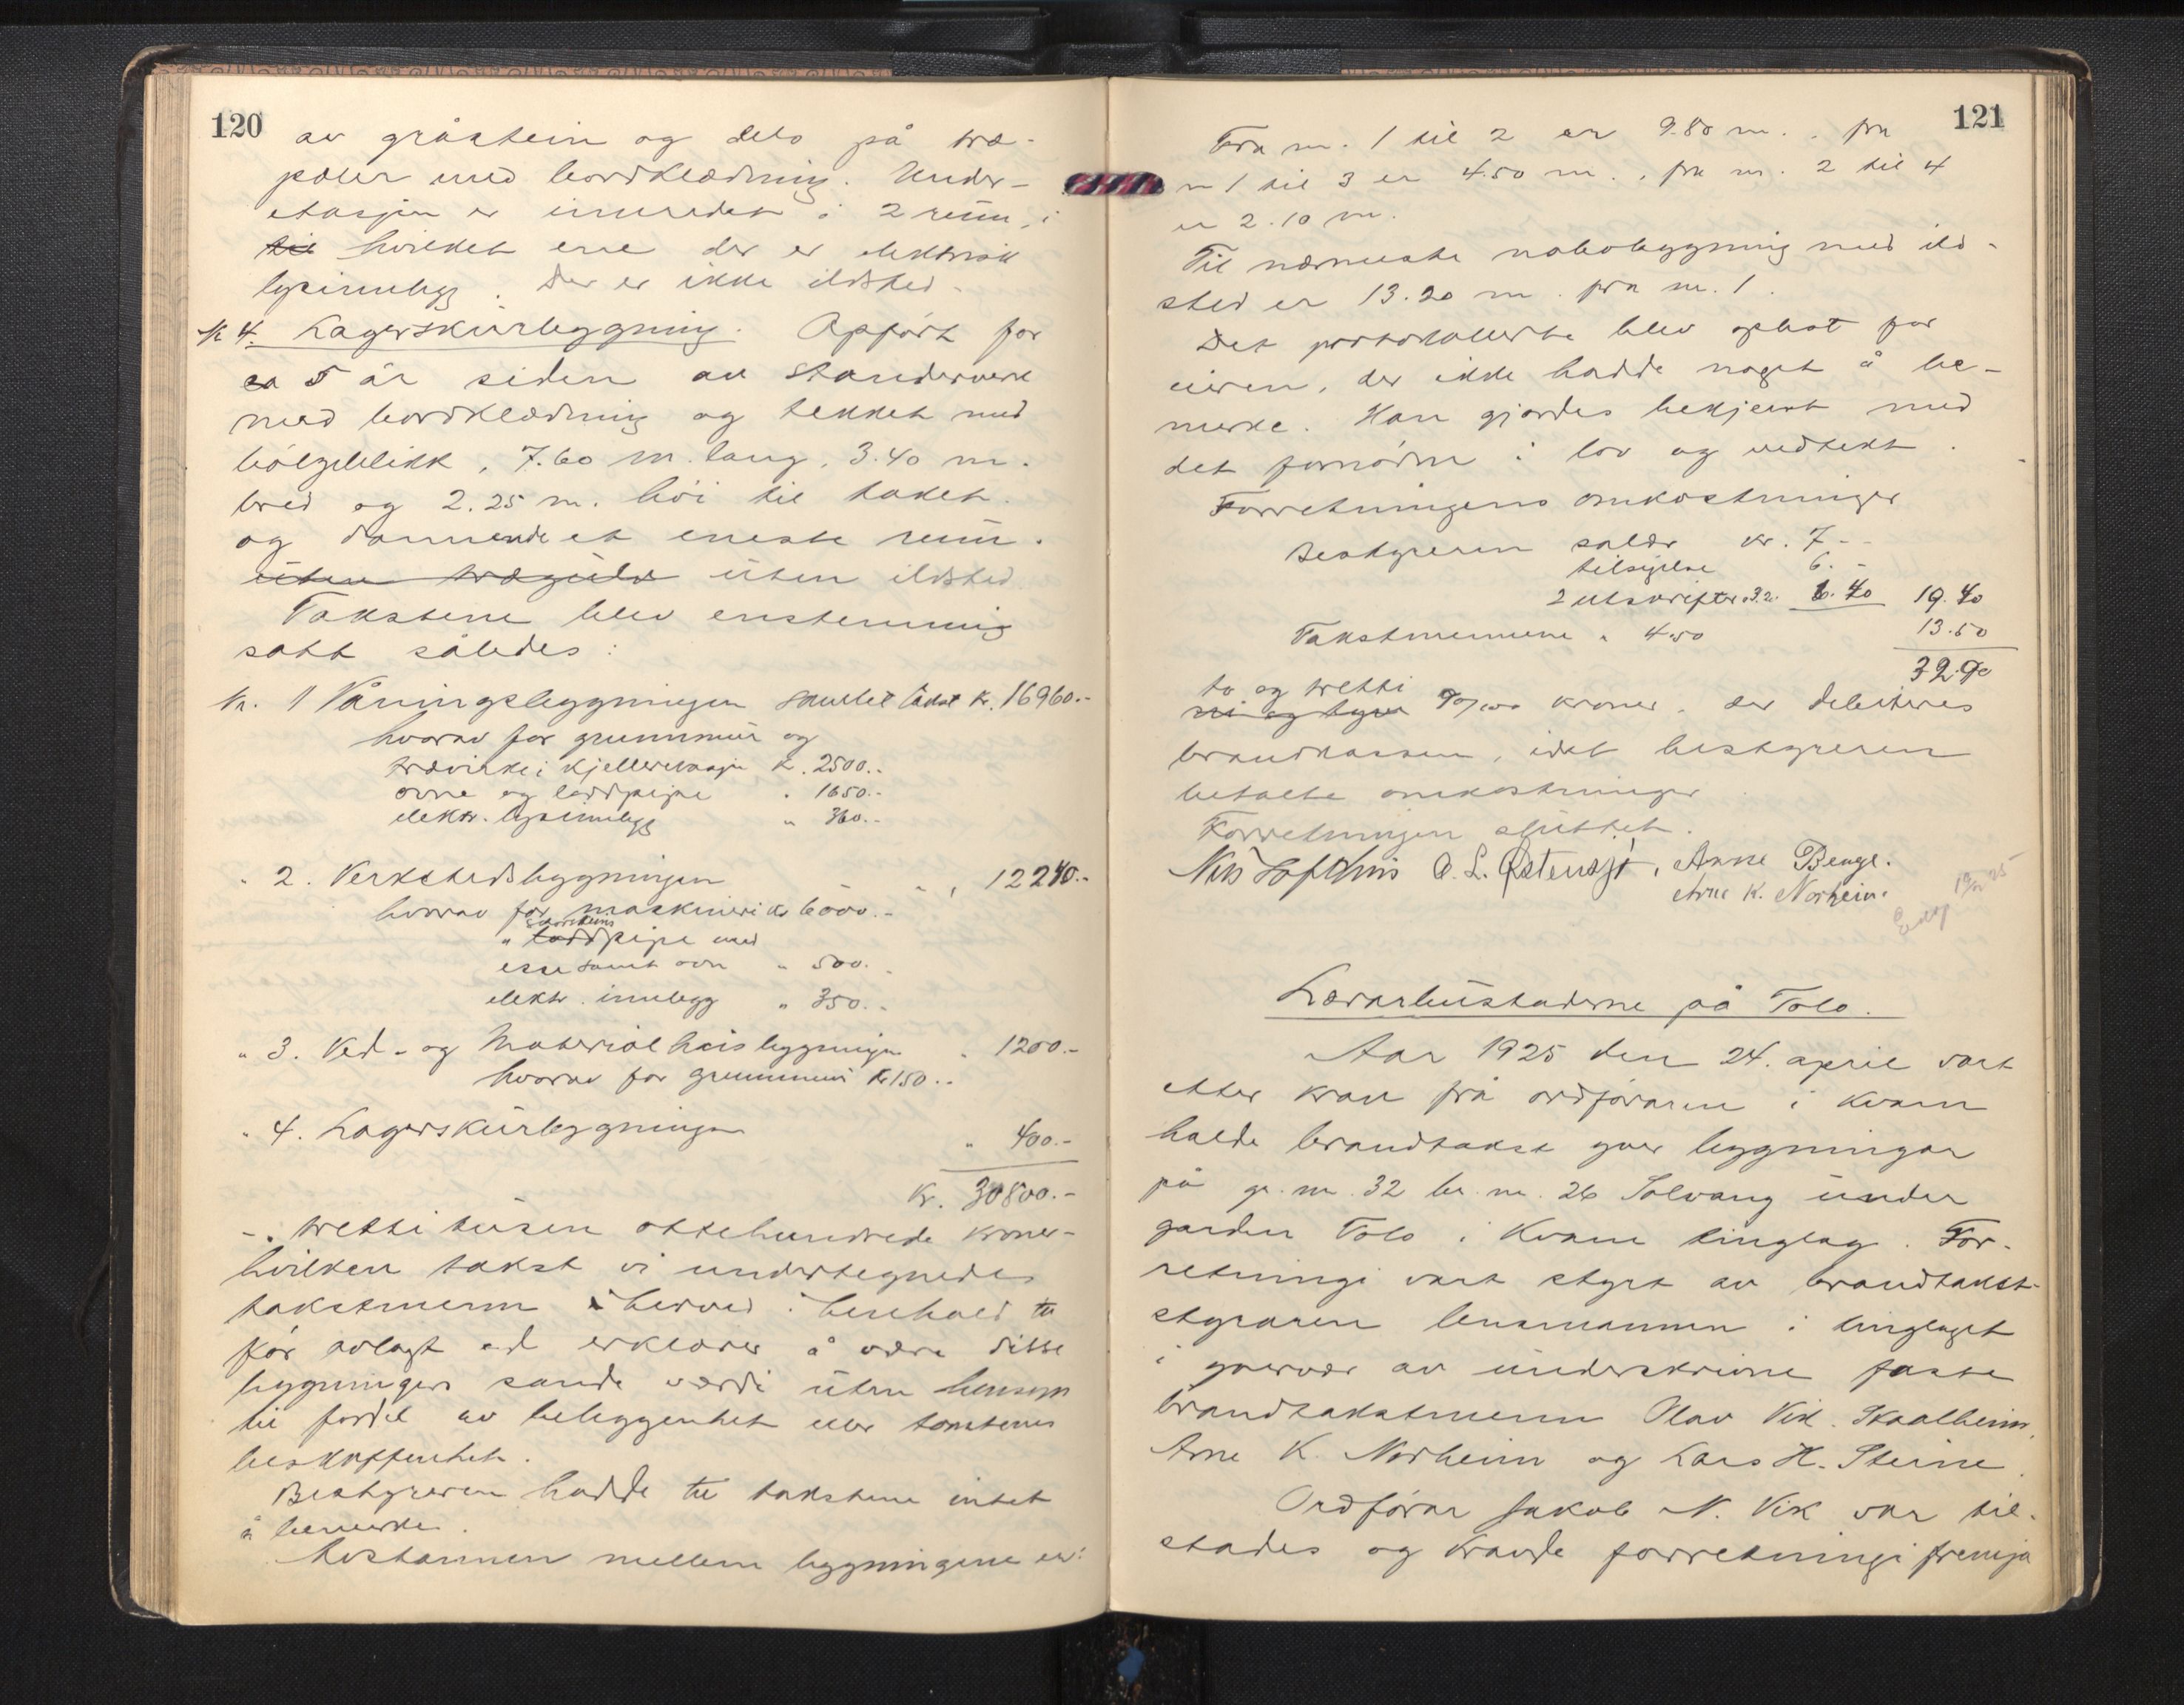 120
av gråstein og dels på træ-
pæler med bordklædning. Under-
etasjen er innredet i 2 rum, i
til hvilket ene der er elektrisk
lysinnlegg. Der er ikke ildsted.
Nr 4. Lagerskurbygning. Opført for
ca 5 år siden av standerverk
med bordklædning og tekket med
bølgeblikk, 7.60 m. lang, 3.40 m.
bred og 2.25 m. høi til taket
og dannende et eneste rum.
uten træguld uten ildsted
Takstene blev enstemmig
satt således:
Nr. 1 Våningsbygningen samlet takst kr. 16960.-
hvorav for grunnmur og
trævirke i kjelleretasje kr. 2500.-
ovne og loddpipe " 1650.-
elektr. lysinnlegg " 360.-
" 2. Verkstedsbygningen " " 12240.-
hvorav for maskineri kr 6000.-
skorsteins
" loddpipe med
esse samt ovn " 500.-
elektr. innlegg " 350.-
" 3. Ved- og Materialhusbygningen " 1200.-
hvorav for grunnmur kr 150.-
" 4. Lagerskurbygningen " 400.-
Kr. 30800.-
-. tretti tusen ottehundrede kroner-
hvilken takst vi undertegnede
takstmenn i herved i henhold til
før avlagt ed erklærer å være disse
bygningers sande værdi uten hensyn
til fordel av beliggenhet eller tomtens
beskaffenhet.
Bestyreren hadde til takstene intet
å bemerke.
Avstannen mellem bygningene er:
121
Fra nr. 1 til 2 er 9.80 m., fra
nr 1 til 3 er 4.50 m., fra nr. 2 til 4
er 2.10 m.
Til nærmeste nabobygning med ild-
sted er 13.20 m. fra nr. 1.
Det protokollerte blev oplest for
eieren, der ikke hadde noget å be-
merke. Han gjordes bekjent med
det fornødne i lov og vedtekt.
Forretningens omkostninger
Bestyreren salær kr. 7.-
tilsigelse 6.-
2 utskrifter à 3.2. 6.40 19.40
Takstmennene à 4.50 13.50
32.90
to og tretti
90/100 kroner, der debiteres
brandkassen, idet bestyreren
betalte omkostninger
Forretningen sluttet.
Nils Lofthus O. L. Østensjø, Arne Berge.
Arne K. Norheim.
Lærarbustaderne på Tolo.
Aar 1925 den 24. april vart
etter krav frå ordføraren i Kvam
halde brandtakst yver bygningar
på gr. nr. 32 br. nr. 26 Solvang under
garden Tolo i Kvam tinglag. For-
retningi vart styrt av brandtakst-
styraren lensmannen i tinglaget
i yvervær av underskrivne faste
brandtakstmenn Olav Vik Skaalheim,
Arne K. Norheim og Lars H. Steine.
Ordførar Jakob N. Vik var til-
stades og kravde forretningi fremja